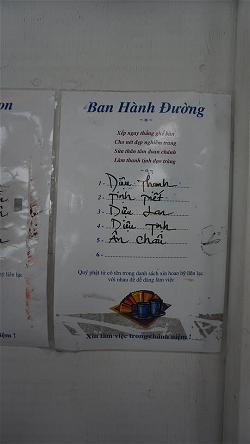 on
Ban Hành Đường
Xếp ngay thẳng ghế bàn
Cho nét đẹp nghiêm trang
Sửa thân tâm đoan chánh
Làm thanh tịnh đạo tràng
1- Diệu Thanh
2- Tịnh Tiết
3- Diệu Lan
4- Diệu Tịnh
5- Ân Châu
6-
Quý phật tử có tên trong danh sách xin hoan hỷ liên lạc
với nhau để dễ dàng làm việc
Xin làm việc trong chánh niệm !
hỷ liên lạc
niệm !